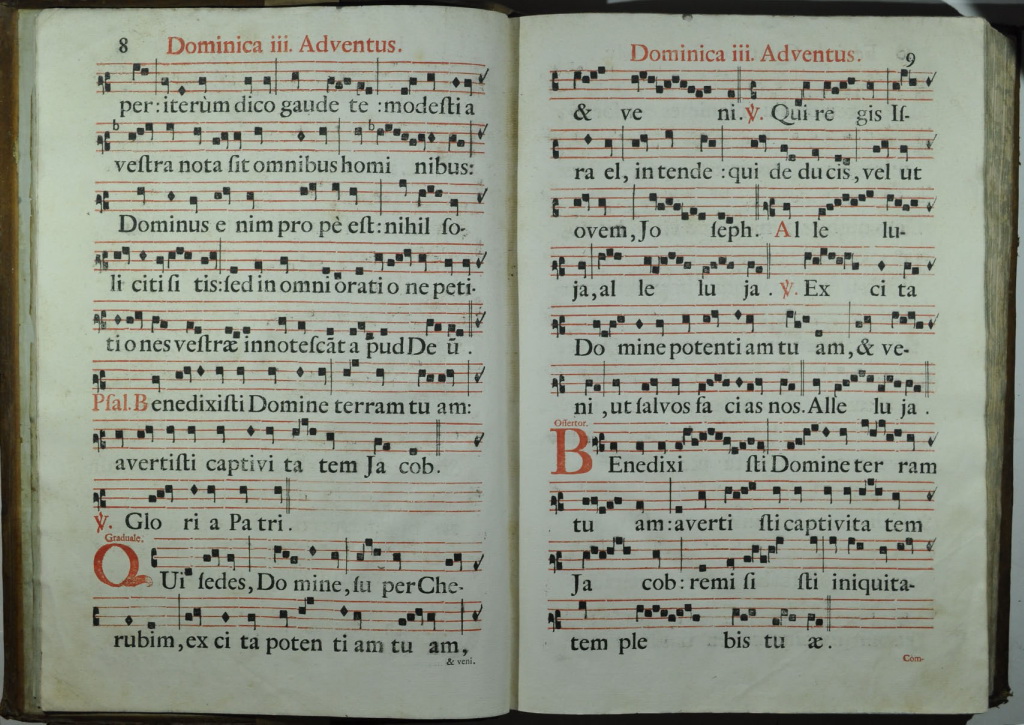 8 Dominica iii. Adventus.
per: iterùm dico gaude te : modeſti a
veſtra nota ſit omnibus homi nibus:
Dominus e nim pro pè eſt: nihil ſo-
li citi ſi tis: ſed in omni orati o ne peti-
ti o nes veſtræ innoteſcãt a pud De ũ .
Pſal. B enedixiſti Domine terram tu am:
avertiſti captivi ta tem Ja cob.
℣. Glo ri a Pa tri.
Graduale.
QUi ſedes, Do mine, ſu per Che-
rubim, ex ci ta poten ti am tu am,
& veni.
Dominica iii. Adventus. 9
& ve ni. ℣. Qui re gis Iſ-
ra el, in tende : qui de du cis, vel ut
ovem, Jo ſeph. Al le lu-
ja, al le lu ja . ℣. Ex ci ta
Do mine potenti am tu am, & ve-
ni , ut ſalvos fa ci as nos. Alle lu ja .
Offertor.
BEnedixi ſti Domine ter ram
tu am: averti ſti captivita tem
Ja cob: remi ſi ſti iniquita-
tem ple bis tu æ.
Com-